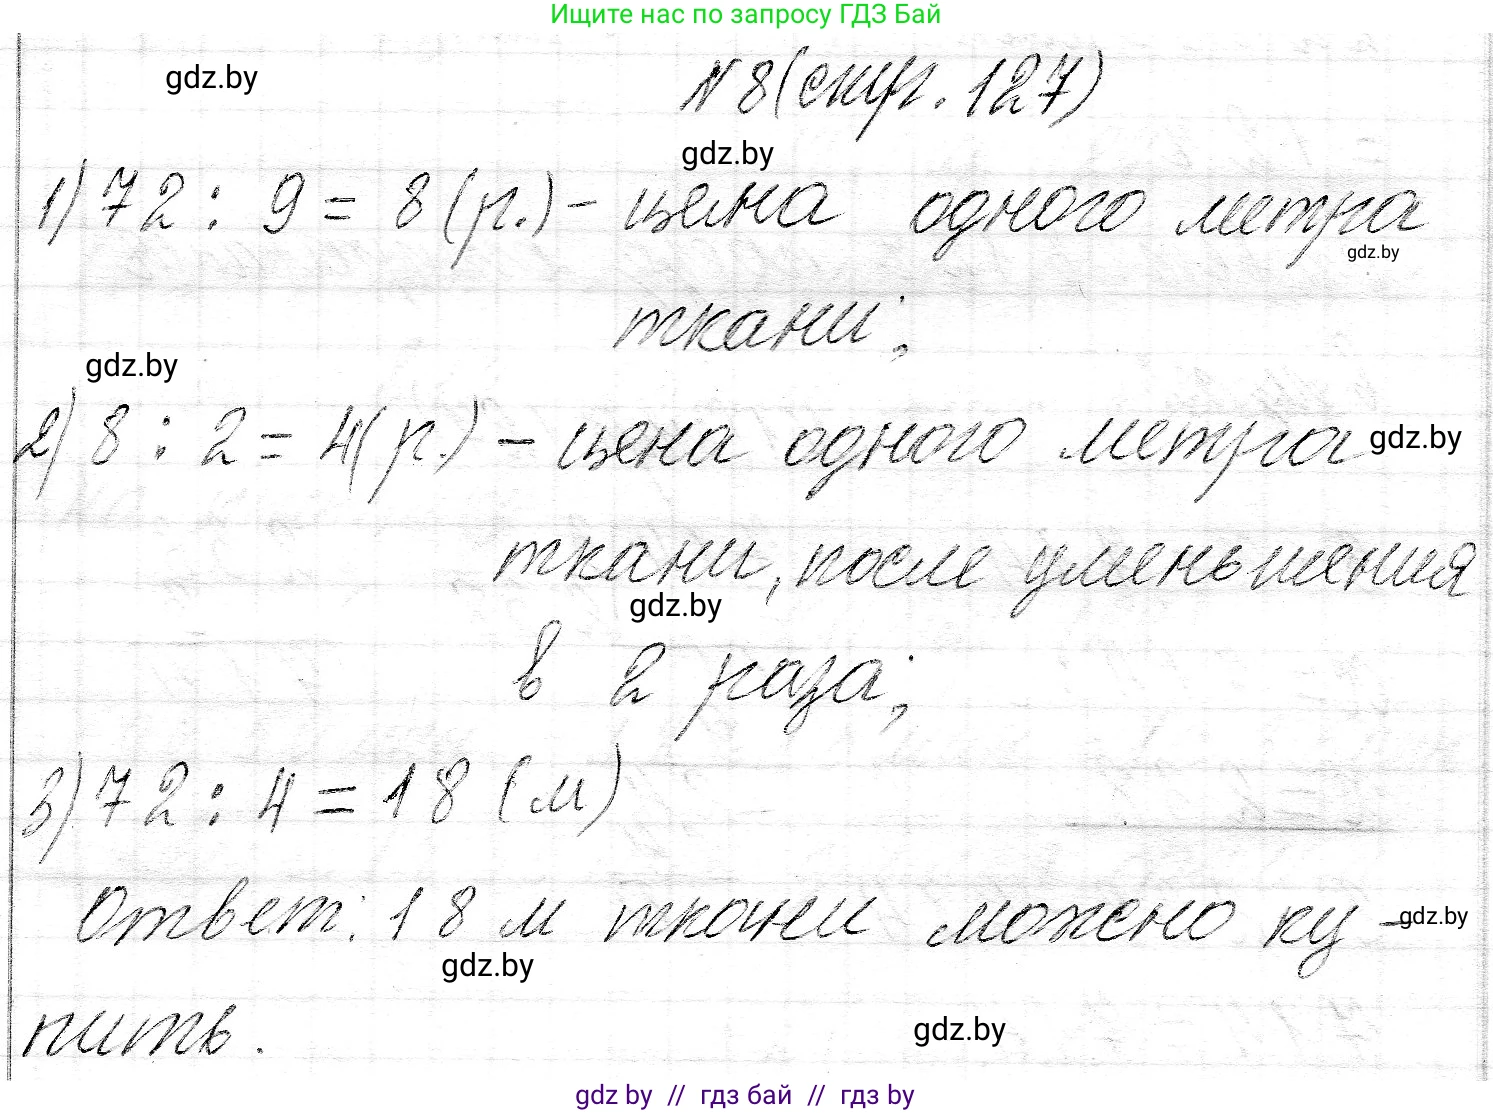 Ищите нас по запросу ГДЗ Бай
gdz.by
№8(стр. 127)
gdz.by
1) 72 : 9 = 8 (р.) - цена одного метра
gdz.by
ткани;
gdz.by
2) 8 : 2 = 4 (р.) - цена одного метра gdz.by
ткани, после уменьшения
gdz.by
в 2 раза;
3) 72 : 4 = 18 (м)
Ответ: 18 м ткани можно ку - gdz.by
gdz.by
пить.
gdz.by
gdz by // гдз бай // гдз by